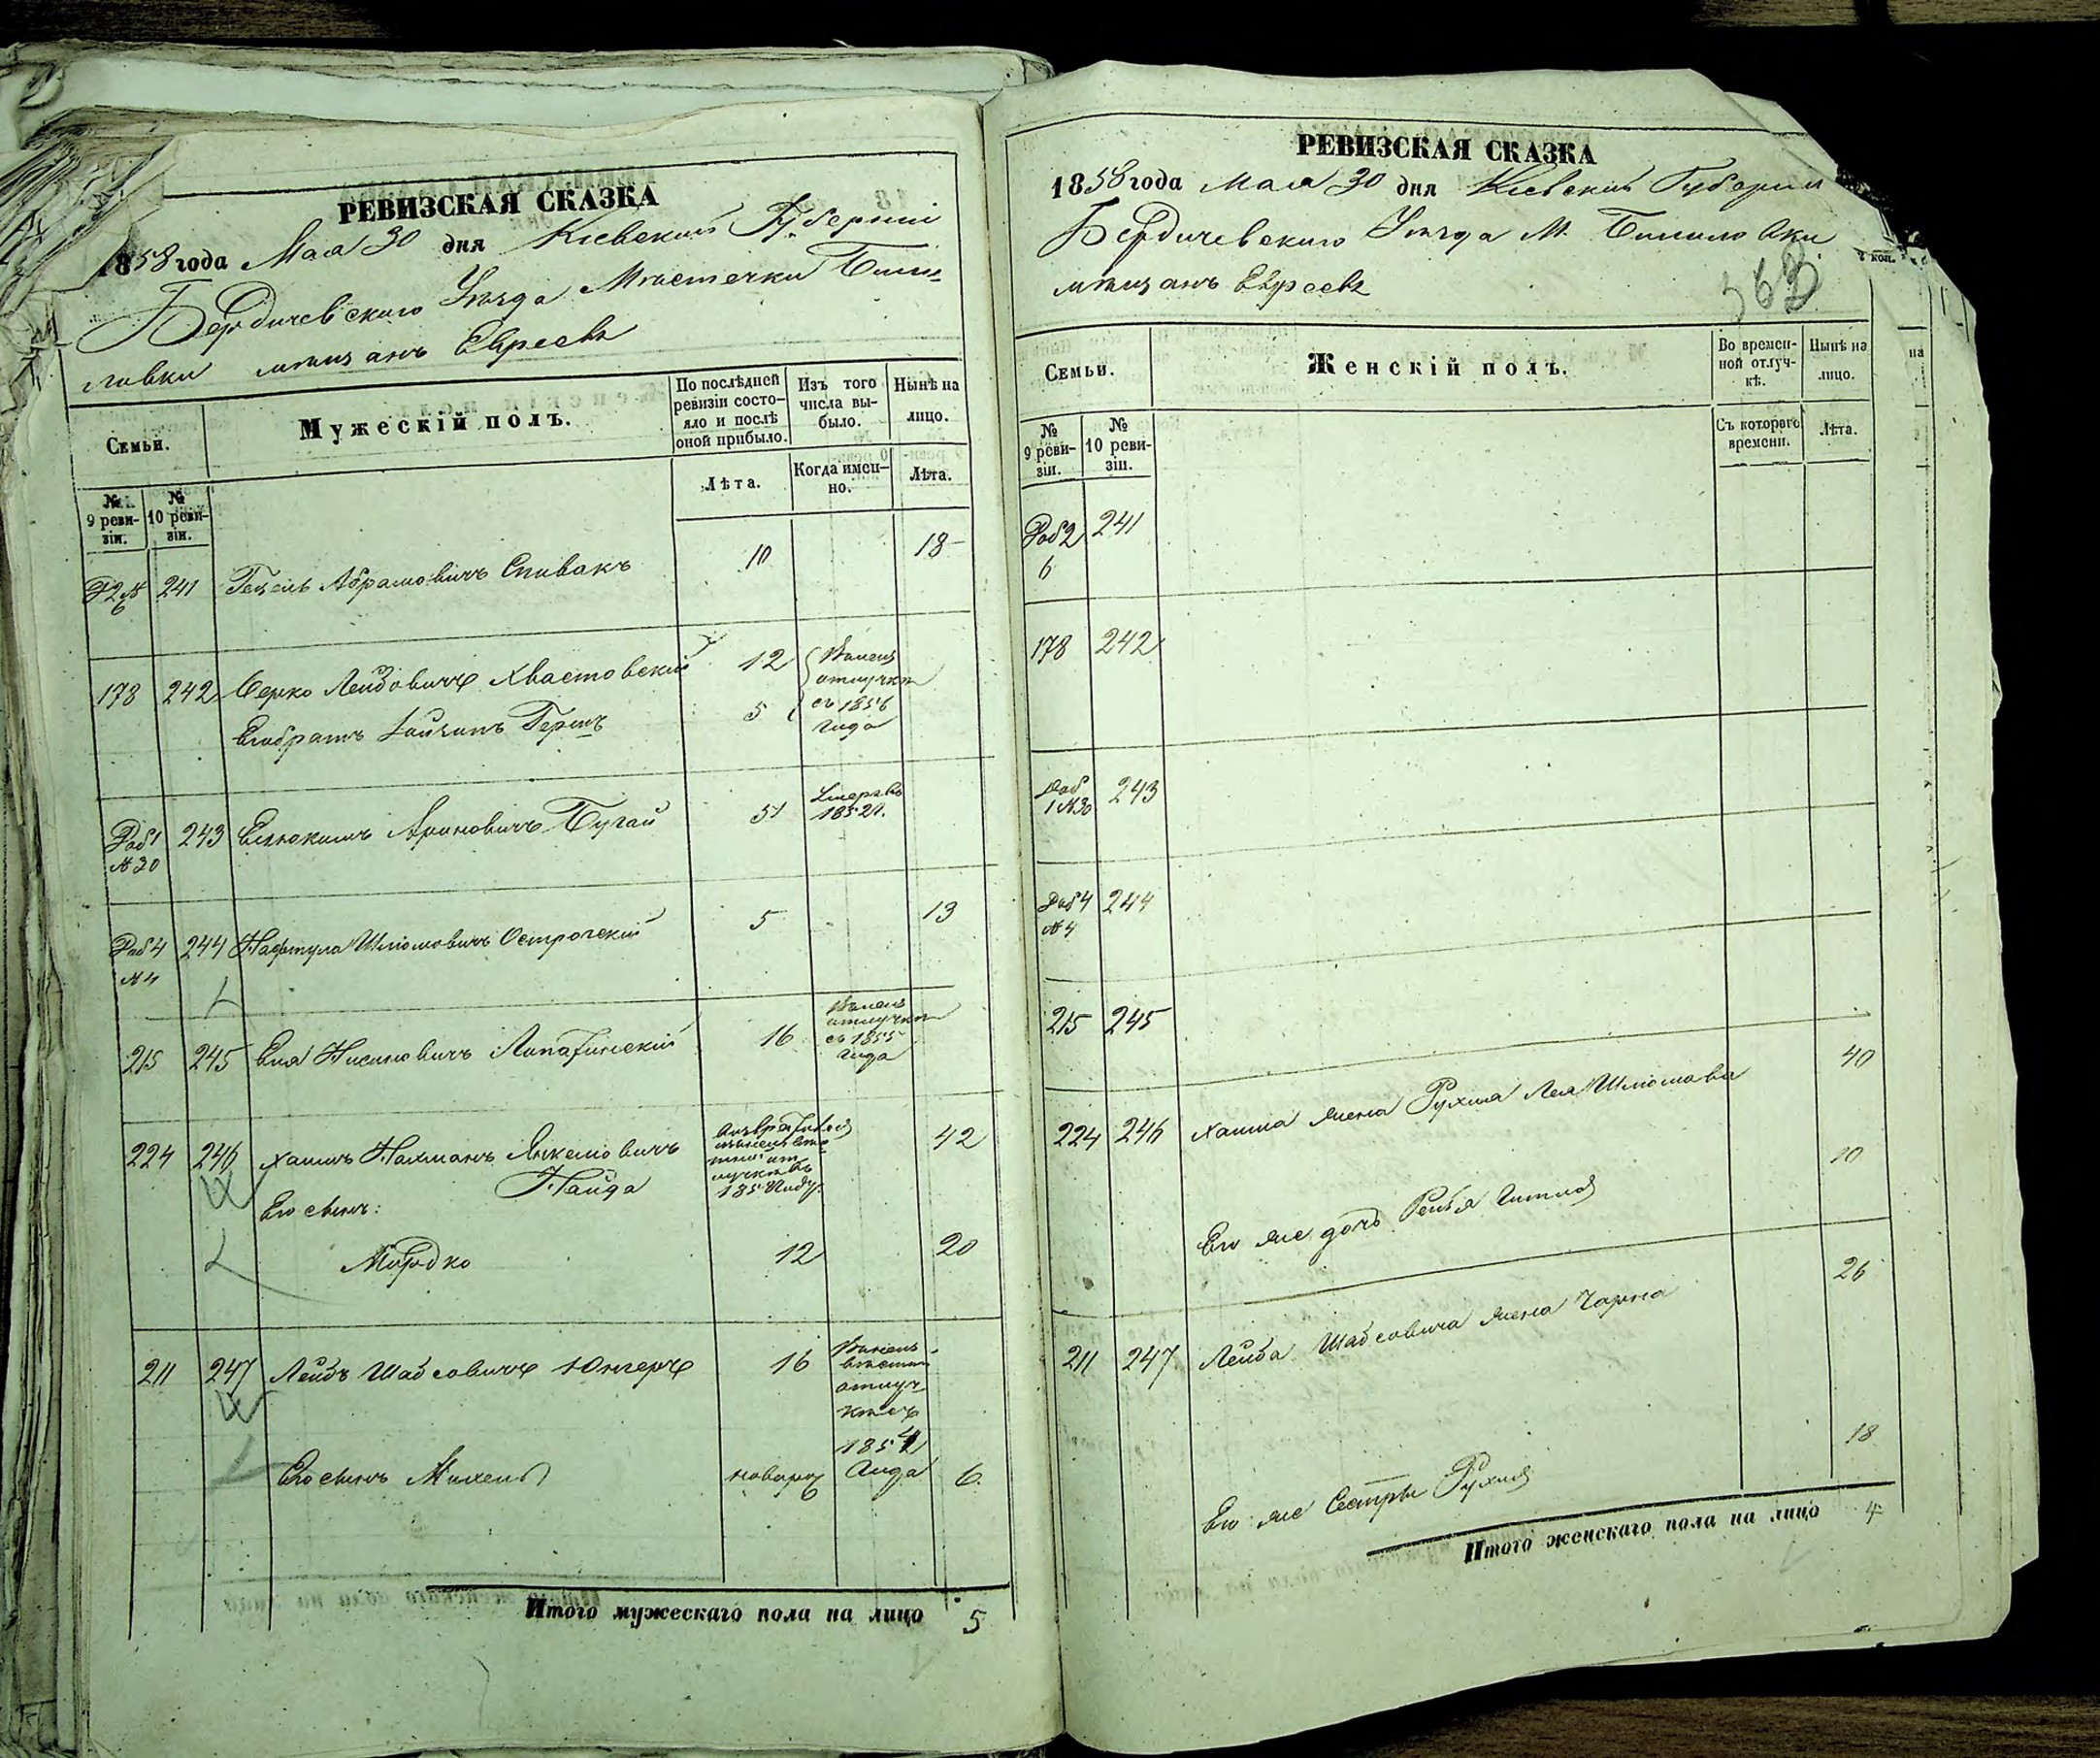 РЕВИЗСКАЯ СКАЗКА
1858 года Мая 30 дня Кіевской Губерніи
Бердичевского Уѣзда Мѣстечки Били=
ловки мѣщанъ Евреевъ
Семьи.
Мужескій полъ.
По послѣдней ревизіи состояло и послѣ оной прибыло.
Изъ того числа выбыло.
Нынѣ на лицо.
№ 9 ревизіи.
№ 10 ревизіи.
Лѣта.
Когда именно.
Лѣта.
241 Гецель Абрамовичъ Спивакъ 10 18
6
178 242 Берко Лейбовичъ Хвастовскій 12 отлучкѣ
Его братъ Герш 5 съ 1856 года
Раб 1 243 Ароновичъ Бугай 51 Умеръ въ
№ 30 1852 г.
Раб 4 244 Нафтула Шлiомовичъ Острогскій 5 13
№ 4
215 245 Еля 16 отлучкѣ
съ 1855
года
224 246 Хаимъ Нахманъ Янкелiовичъ 42
Найда
Его сынъ:
Мордко 12 20
211 247 Лейбъ Шабсовичъ Юнгеръ 16
отлуч
кѣ съ
185
Его сынъ Михель новорож года 6.
Итого мужескаго пола на лицо 5
РЕВИЗСКАЯ СКАЗКА
1858 года Мая 30 дня Кіевской Губерніи
Бердичевского Уѣзда М. Билиловки
мѣщанъ Евреевъ
Семьи.
Женскій полъ.
Во временной отлучкѣ.
Нынѣ на лицо.
№ 9 ревизіи.
№ 10 ревизіи.
Съ котораго времени.
Лѣта.
Раб 2 241
6
178 242
Раб 243
1 № 30
Раб 4 244
№ 4
215 245
224 246 Хаима жена Рухля Лея Шлiомова 40
Его же дочь Рейзя Гитля 10
211 247 Лейба Шабсовича жена Чарна 26
Его же Сестры Рухля 18
Итого женскаго пола на лицо 4